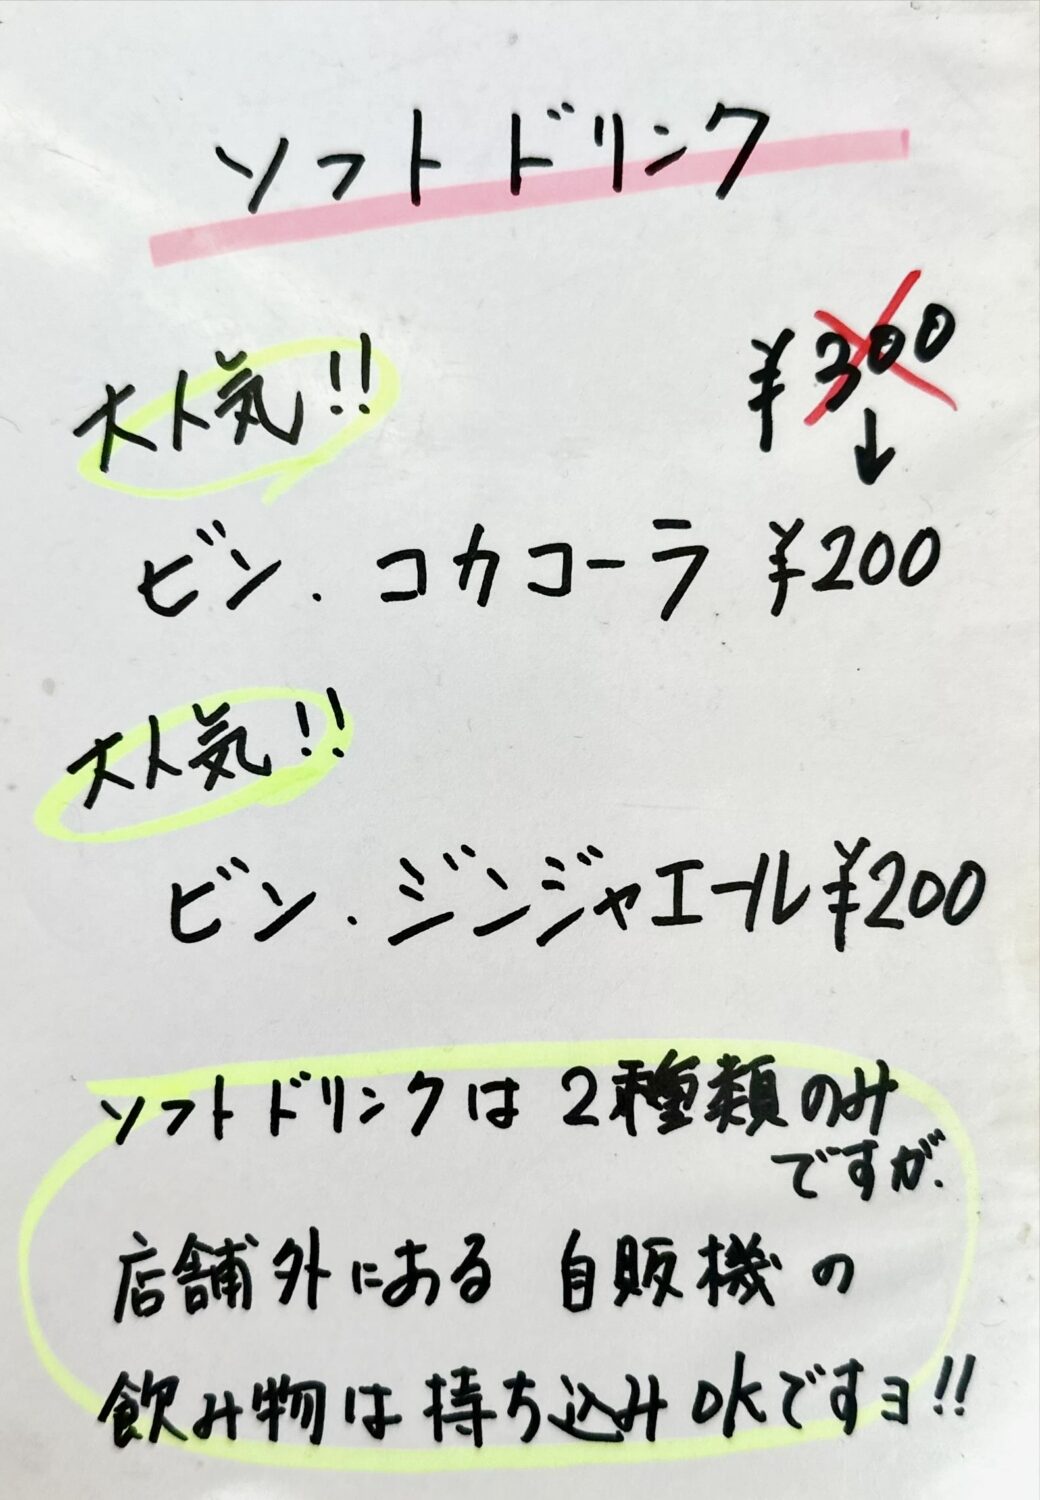 ソフトドリンク
大人気!!
¥300
↓
ビン.コカコーラ ¥200
大人気!!
ビン.ジンジャエール ¥200
ソフトドリンクは2種類のみ
ですが.
店舗外にある 自販機の
飲み物は持ち込みOKですヨ!!